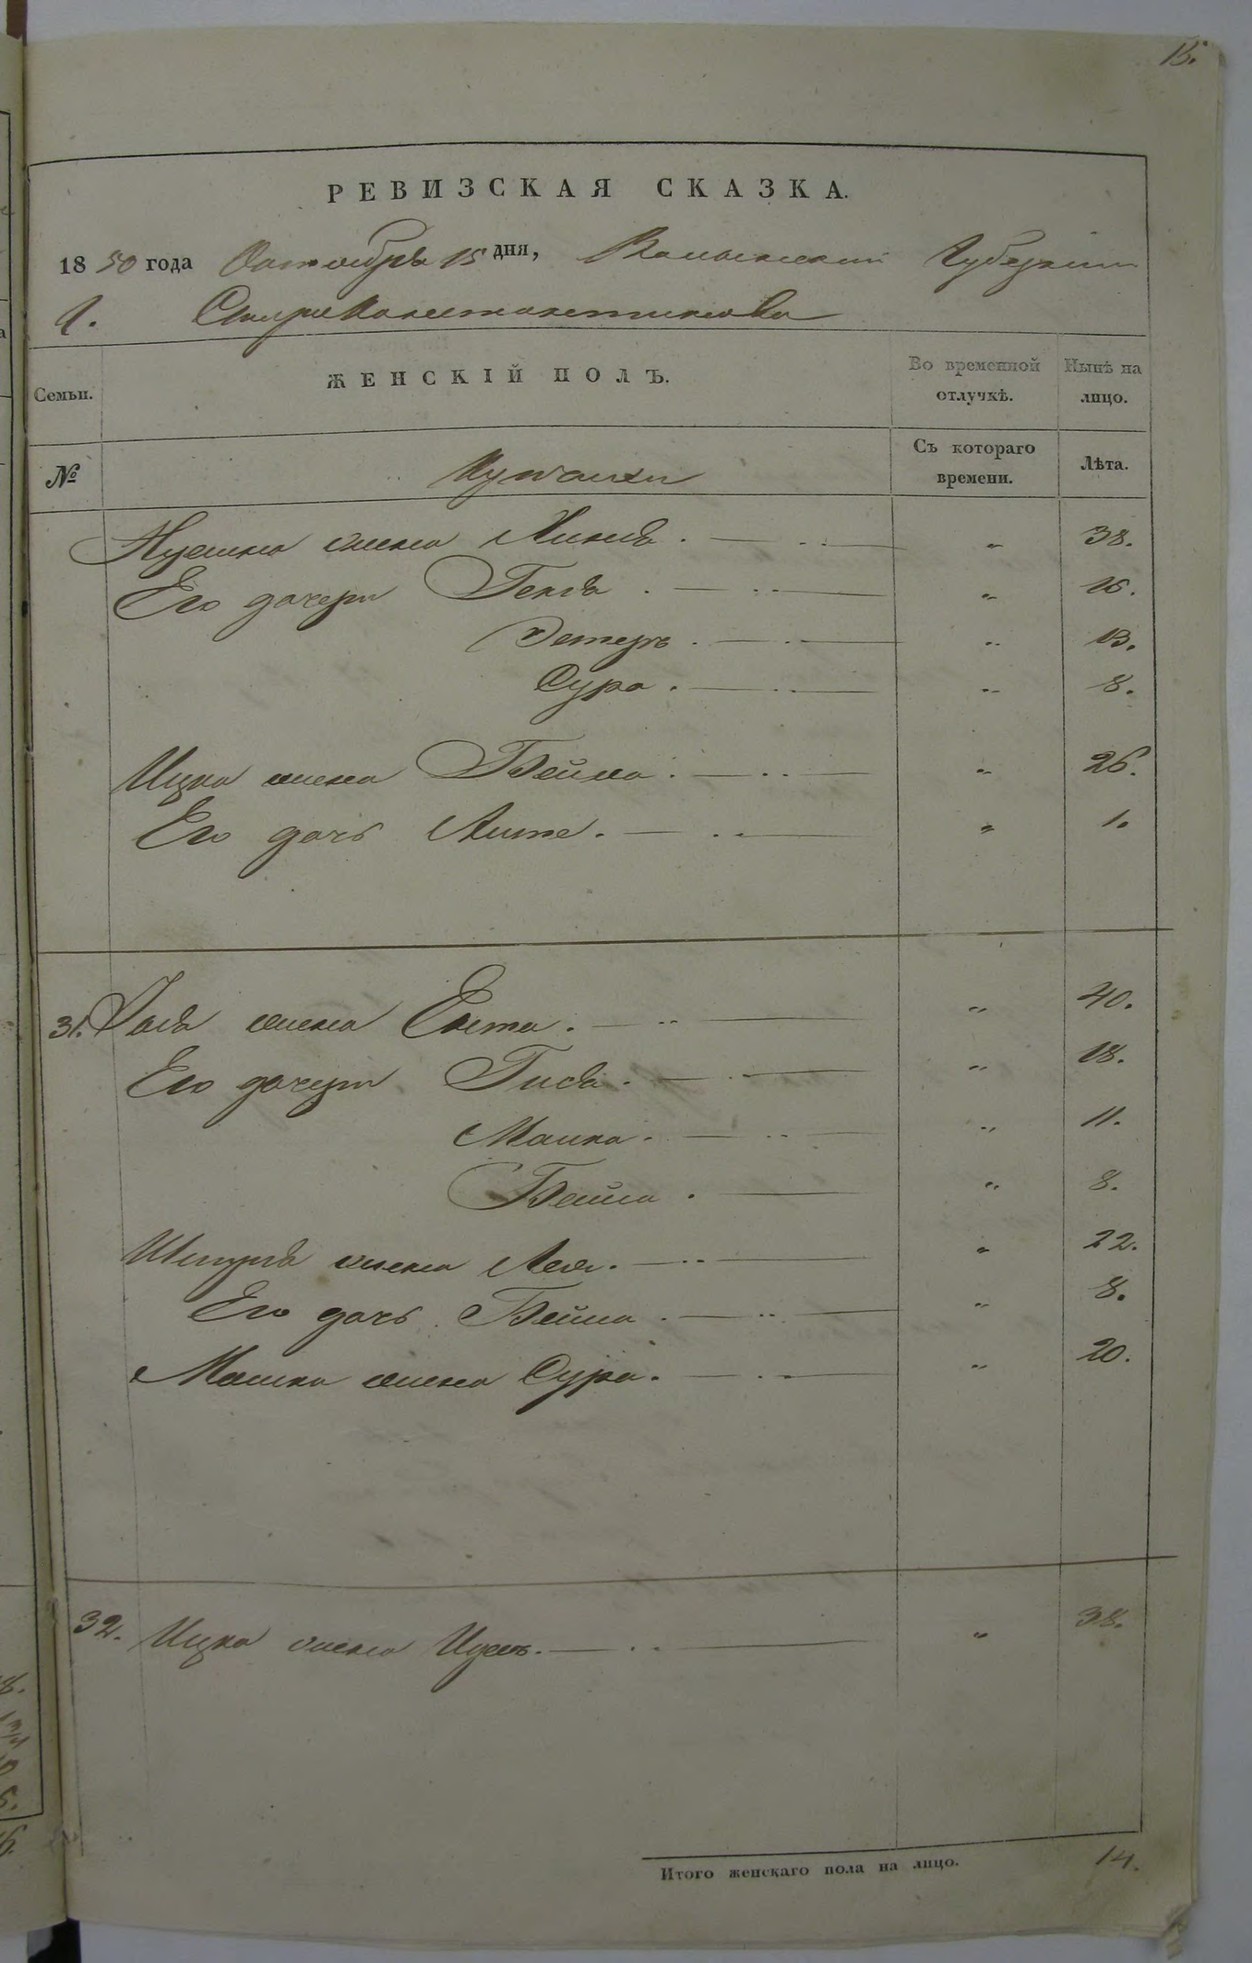 РЕВИЗСКАЯ СКАЗКА.
1850 года Октября 15 дня, Волынской Губернии
Г. Староконстантинова
Семьи. ЖЕНСКІЙ ПОЛЪ. Во временной отлучкѣ. Нынѣ на лицо.
№ Съ котораго времени. Лѣта.
жена 38.
Его дочери Генда . „ 16.
Эстеръ . „ 13.
Сура . „ 8.
Ицка жена Бейла . „ 26.
Его дочь . „ 1.
31. жена . „ 40.
Его дочери . „ 18.
. „ 11.
Бейла . „ 8.
жена Лея . „ 22.
Его дочь Бейла . „ 8.
Мошка жена Сура . „ 20.
32. Ицка жена „ 38.
Итого женскаго пола на лицо. 14.